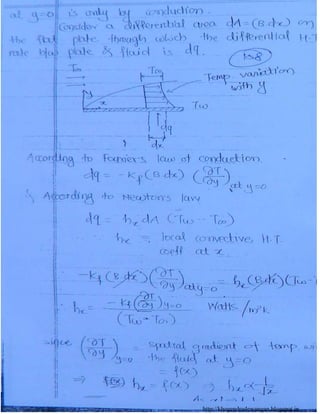 at y=0 is only by conduction.
Consider a differential area dA=(B.dx) on
the flat plate through which the differential H.T
rate b/w plate & fluid is dq.
T∞ T∞ Temp. variation
with y
y
x Tw
dq
dx
According to Fourier's law of conduction.
dq = -Kf (B.dx) (∂T/∂y) at y=0
& According to Newton's law
dq = hx dA (Tw - T∞)
hx = local convective H.T.
coeff at x.
-Kf (B.dx) (∂T/∂y) at y=0 = hx (B.dx)(Tw-
hx = -Kf (∂T/∂y) y=0 / (Tw - T∞) Watts/m²K
(∂T/∂y) y=0 = spatial gradient of temp
the fluid at y=0
= f(x)
⇒ hx = f(x) ⇒ hx ∝ 1/√x